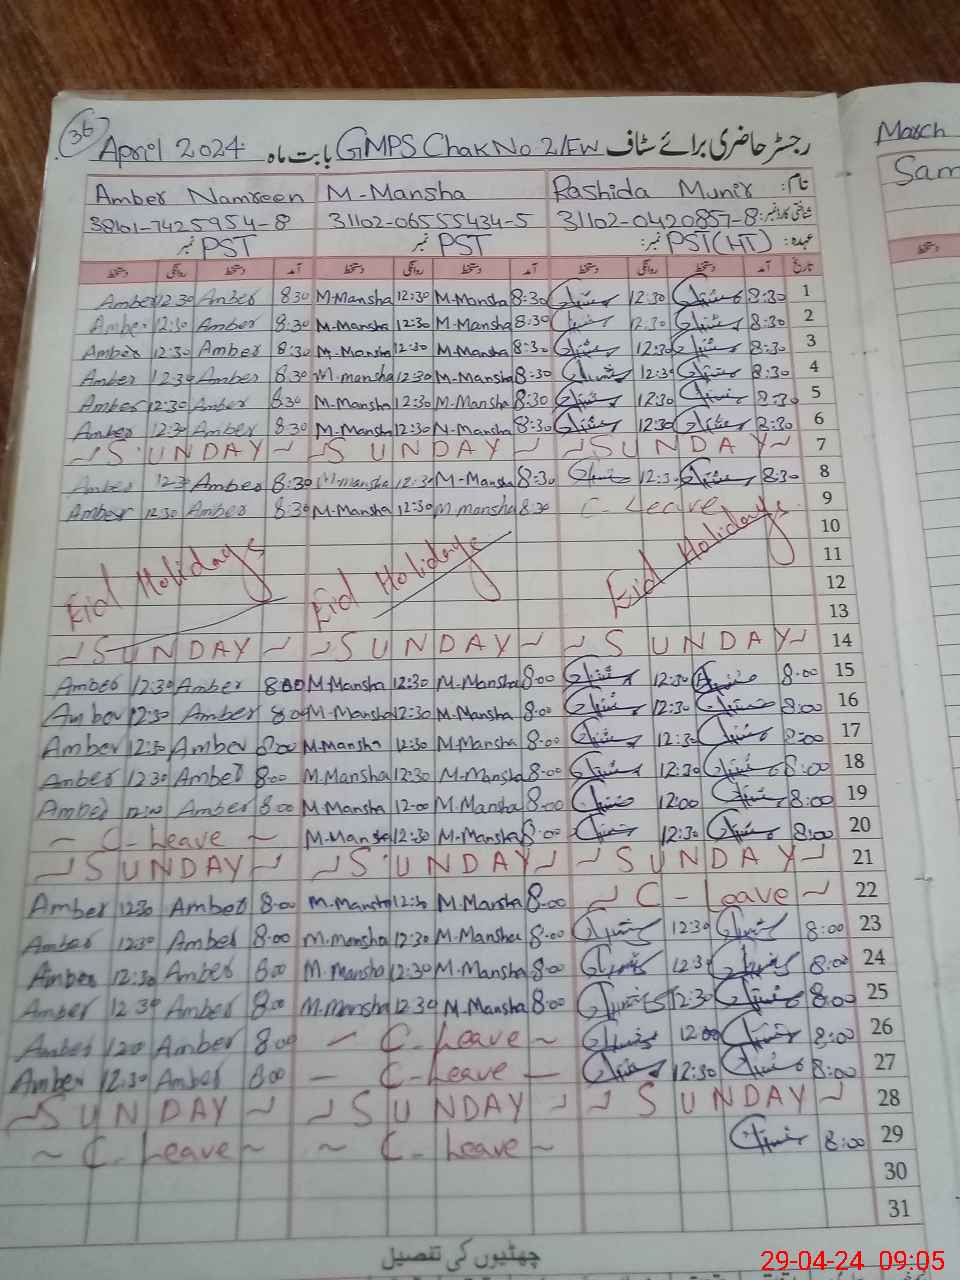 36
April 2024 بابت ماہ GMPS Chak No 2/FW رجسٹر حاضری برائے سٹاف
March
Amber Namreen M-Mansha Rashida Munir نام:
Sam
38101-7425954-8 31102-06555434-5 31102-0420857-8 شناختی کارڈ نمبر:
PST نمبر PST نمبر PST(HT) عہدہ:
دستخط روانگی دستخط آمد دستخط روانگی دستخط آمد دستخط روانگی دستخط آمد تاریخ
Amber 12.30 Amber 8.30 M.Mansha 12:30 M.Mansha 8:30 12:30 8:30 1
Amber 12:30 Amber 8:30 M.Mansha 12:30 M.Mansha 8:30 12:30 8:30 2
Amber 12:30 Amber 8:30 M.Mansha 12:30 M.Mansha 8:30 12:30 8:30 3
Amber 12:30 Amber 8.30 M.mansha 12:30 M.Mansha 8:30 12:30 8:30 4
Amber 12:30 Amber 8:30 M.Mansha 12:30 M.Mansha 8:30 12:30 8:30 5
Amber 12:30 Amber 8:30 M.Mansha 12:30 M.Mansha 8:30 12:30 8:30 6
~ SUNDAY ~ ~ SUNDAY ~ ~ SUNDAY ~ 7
Amber 12:3 Amber 8:30 M-mansha 12:30 M-Mansha 8:30 12:30 8:30 8
Amber 12:30 Amber 8:30 M.Mansha 12:30 M.mansha 8:30 C- Leave 9
10
Eid Holidays Eid Holidays Eid Holidays 11
12
13
~ SUNDAY ~ ~ SUNDAY ~ ~ SUNDAY ~ 14
Amber 12:30 Amber 8:00 M.Mansha 12:30 M.Mansha 8:00 12:30 8:00 15
Amber 12:30 Amber 8:00 M.Mansha 12:30 M.Mansha 8:00 12:30 8:00 16
Amber 12:30 Amber 8:00 M.Mansha 12:30 M.Mansha 8:00 12:30 8:00 17
Amber 12:30 Amber 8:00 M.Mansha 12:30 M.Mansha 8:00 12:30 8:00 18
Amber 12:00 Amber 8:00 M.Mansha 12:00 M.Mansha 8:00 12:00 8:00 19
~ C- Leave ~ M.Mansha 12:30 M.Mansha 8:00 12:30 8:00 20
~ SUNDAY ~ ~ SUNDAY ~ ~ SUNDAY ~ 21
Amber 12:30 Amber 8:00 M.Mansha 12:30 M.Mansha 8:00 ~ C- Leave ~ 22
Amber 12:30 Amber 8:00 M.mansha 12:30 M.Mansha 8:00 12:30 8:00 23
Amber 12:30 Amber 8:00 M.Mansha 12:30 M.Mansha 8:00 12:30 8:00 24
Amber 12:30 Amber 8:00 M.Mansha 12:30 M.Mansha 8:00 12:30 8:00 25
Amber 120 Amber 8:00 - C- Leave ~ 12:00 8:00 26
Amber 12:30 Amber 8:00 - C- Leave - 12:30 8:00 27
~ SUNDAY ~ ~ SUNDAY ~ ~ SUNDAY ~ 28
~ C- Leave ~ ~ C- Leave ~ 8:00 29
30
31
چھٹیوں کی تفصیل
29-04-24 09:05